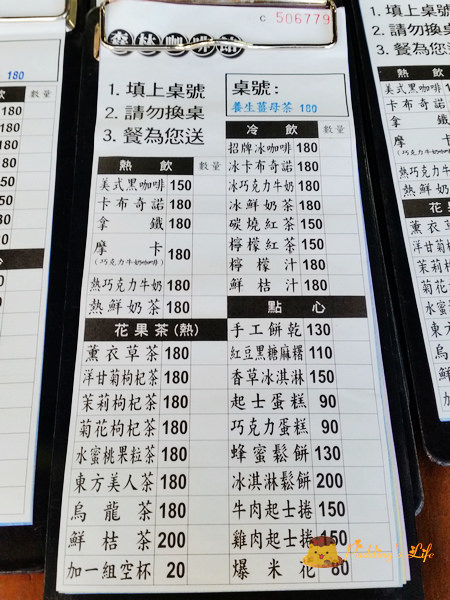 C 506779
森林咖啡館
1. 填上桌號
2. 請勿換桌
3. 餐為您送
桌號:
養生薑母茶 180
熱飲 數量
美式黑咖啡 150
卡布奇諾 180
拿鐵 180
摩卡 180
(巧克力牛奶咖啡)
熱巧克力牛奶 180
熱鮮奶茶 180
花果茶(熱)
薰衣草茶 180
洋甘菊枸杞茶 180
茉莉枸杞茶 180
菊花枸杞茶 180
水蜜桃果粒茶 180
東方美人茶 180
烏龍茶 180
鮮桔茶 200
加一組空杯 20
冷飲 數量
招牌冰咖啡 180
冰卡布奇諾 180
冰巧克力牛奶 180
冰鮮奶茶 180
碳燒紅茶 150
檸檬紅茶 150
檸檬汁 180
鮮桔汁 180
點心
手工餅乾 130
紅豆黑糖麻糬 110
香草冰淇淋 150
起士蛋糕 90
巧克力蛋糕 90
蜂蜜鬆餅 130
冰淇淋鬆餅 200
牛肉起士捲 150
雞肉起士捲 150
爆米花 80
180
飲 數量
180
1. 填上桌號
2. 請勿換桌
3. 餐為您送
熱飲
美式黑咖啡
卡布奇諾
拿鐵
摩
(巧克力牛奶咖啡)
熱巧克力牛奶
熱鮮奶
花果
薰衣草
洋甘菊枸
茉莉枸
菊花
水蜜
東方
烏
鮮
加一
Pudding's Life